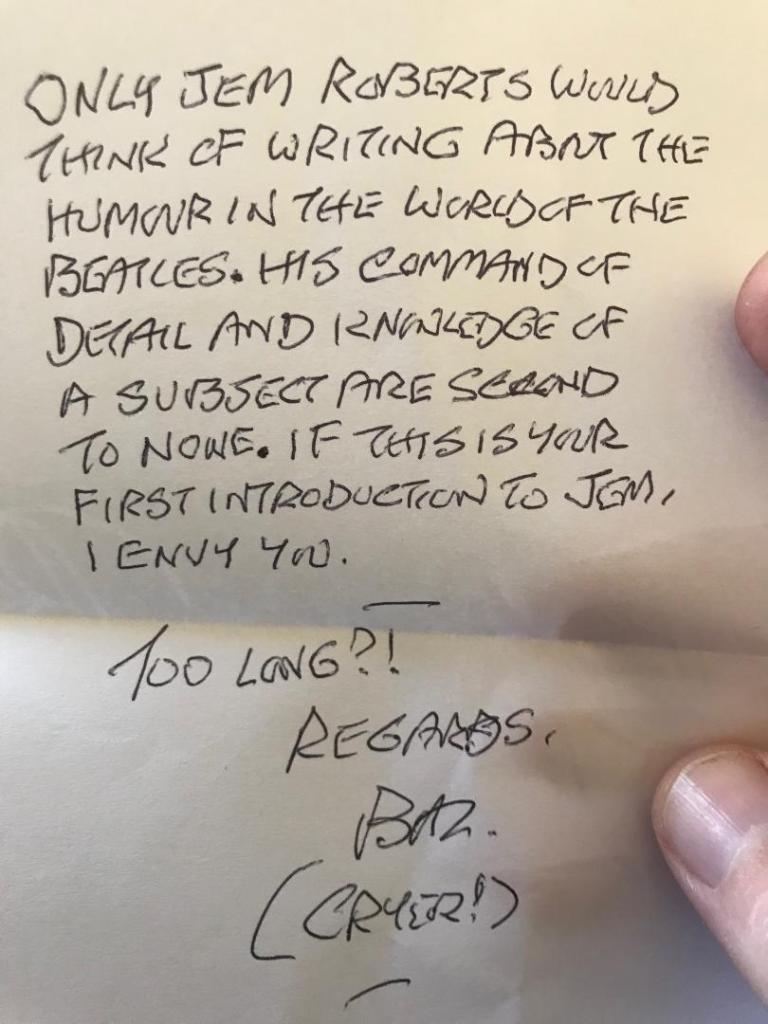 ONLY JEM ROBERTS WOULD
THINK OF WRITING ABOUT THE
HUMOUR IN THE WORLD OF THE
BEATLES. HIS COMMAND OF
DETAIL AND KNOWLEDGE OF
A SUBJECT ARE SECOND
TO NONE. IF THIS IS YOUR
FIRST INTRODUCTION TO JEM,
I ENVY YOU.
TOO LONG?!
REGARDS.
BAZ.
(CRYER!)